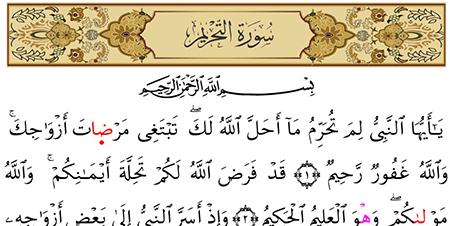 سُورَةُ التَّحْرِيمِ
بِسْمِ اللَّهِ الرَّحْمَٰنِ الرَّحِيمِ
يَٰٓأَيُّهَا النَّبِىُّ لِمَ تُحَرِّمُ مَآ أَحَلَّ اللَّهُ لَكَ ۖ تَبْتَغِى مَرْضَاتَ أَزْوَٰجِكَ ۚ
وَاللَّهُ غَفُورٌ رَّحِيمٌ ﴿١﴾ قَدْ فَرَضَ اللَّهُ لَكُمْ تَحِلَّةَ أَيْمَٰنِكُمْ ۚ وَاللَّهُ
مَوْلَىٰكُمْ ۖ وَهُوَ الْعَلِيمُ الْحَكِيمُ ﴿٢﴾ وَإِذْ أَسَرَّ النَّبِىُّ إِلَىٰ بَعْضِ أَزْوَٰجِهِۦ